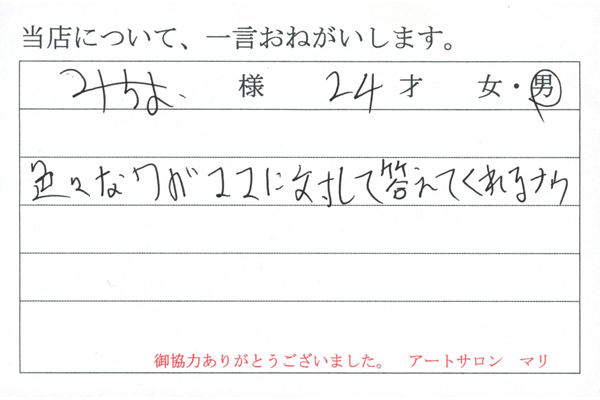 当店について、一言おねがいします。
みちお 様 24才 女・男
色々なワガママに対して答えてくれるから
御協力ありがとうございました。 アートサロン マリ